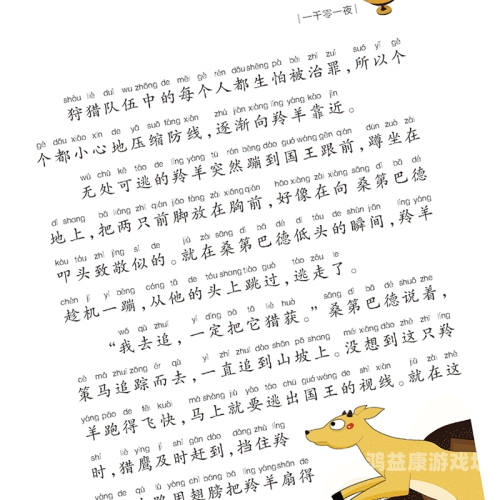 一千零一夜
shòu liè duì wu zhōng de měi gè rén dōu shēng pà bèi zhì zuì suǒ yǐ gè
狩猎队伍中的每个人都生怕被治罪，所以个
gè dōu xiǎo xīn de yā suō fáng xiàn zhú jiàn xiàng líng yáng kào jìn
个都小心地压缩防线，逐渐向羚羊靠近。
wú chù kě táo de líng yáng tū rán bèng dào guó wáng gēn qián dūn zuò zài
无处可逃的羚羊突然蹦到国王跟前，蹲坐在
dì shang bǎ liǎng zhī qián jiǎo fàng zài xiōng qián hǎo xiàng zài xiàng sāng dì bā dé
地上，把两只前脚放在胸前，好像在向 桑第巴德
kòu tóu zhì jìng sì de jiù zài sāng dì bā dé dī tóu de shùn jiān líng yáng
叩头致敬似的。就在桑第巴德低头的瞬间，羚羊
chèn jī yí bèng cóng tā de tóu shang tiào guò táo zǒu le
趁机一蹦，从他的头上跳过，逃走了。
wǒ qù zhuī yí dìng bǎ tā liè huò sāng dì bā dé shuō zhe
“我去追，一定把它猎获。”桑第巴德说着，
cè mǎ zhuī zōng ér qù yì zhí zhuī dào shān pō shang méi xiǎng dào zhè zhī líng
策马追踪而去，一直追到山坡上。没想到这只羚
yáng pǎo de fēi kuài mǎ shàng jiù yào táo chū guó wáng de shì xiàn jiù zài zhè
羊跑得飞快，马上就要逃出国王的视线。就在这
shí liè yīng jí shí gǎn dào dǎng zhù líng
时，猎鹰及时赶到，挡住羚
yòng chì bǎng bǎ líng yáng shān de
用翅膀把羚羊扇得
鸿益康游戏